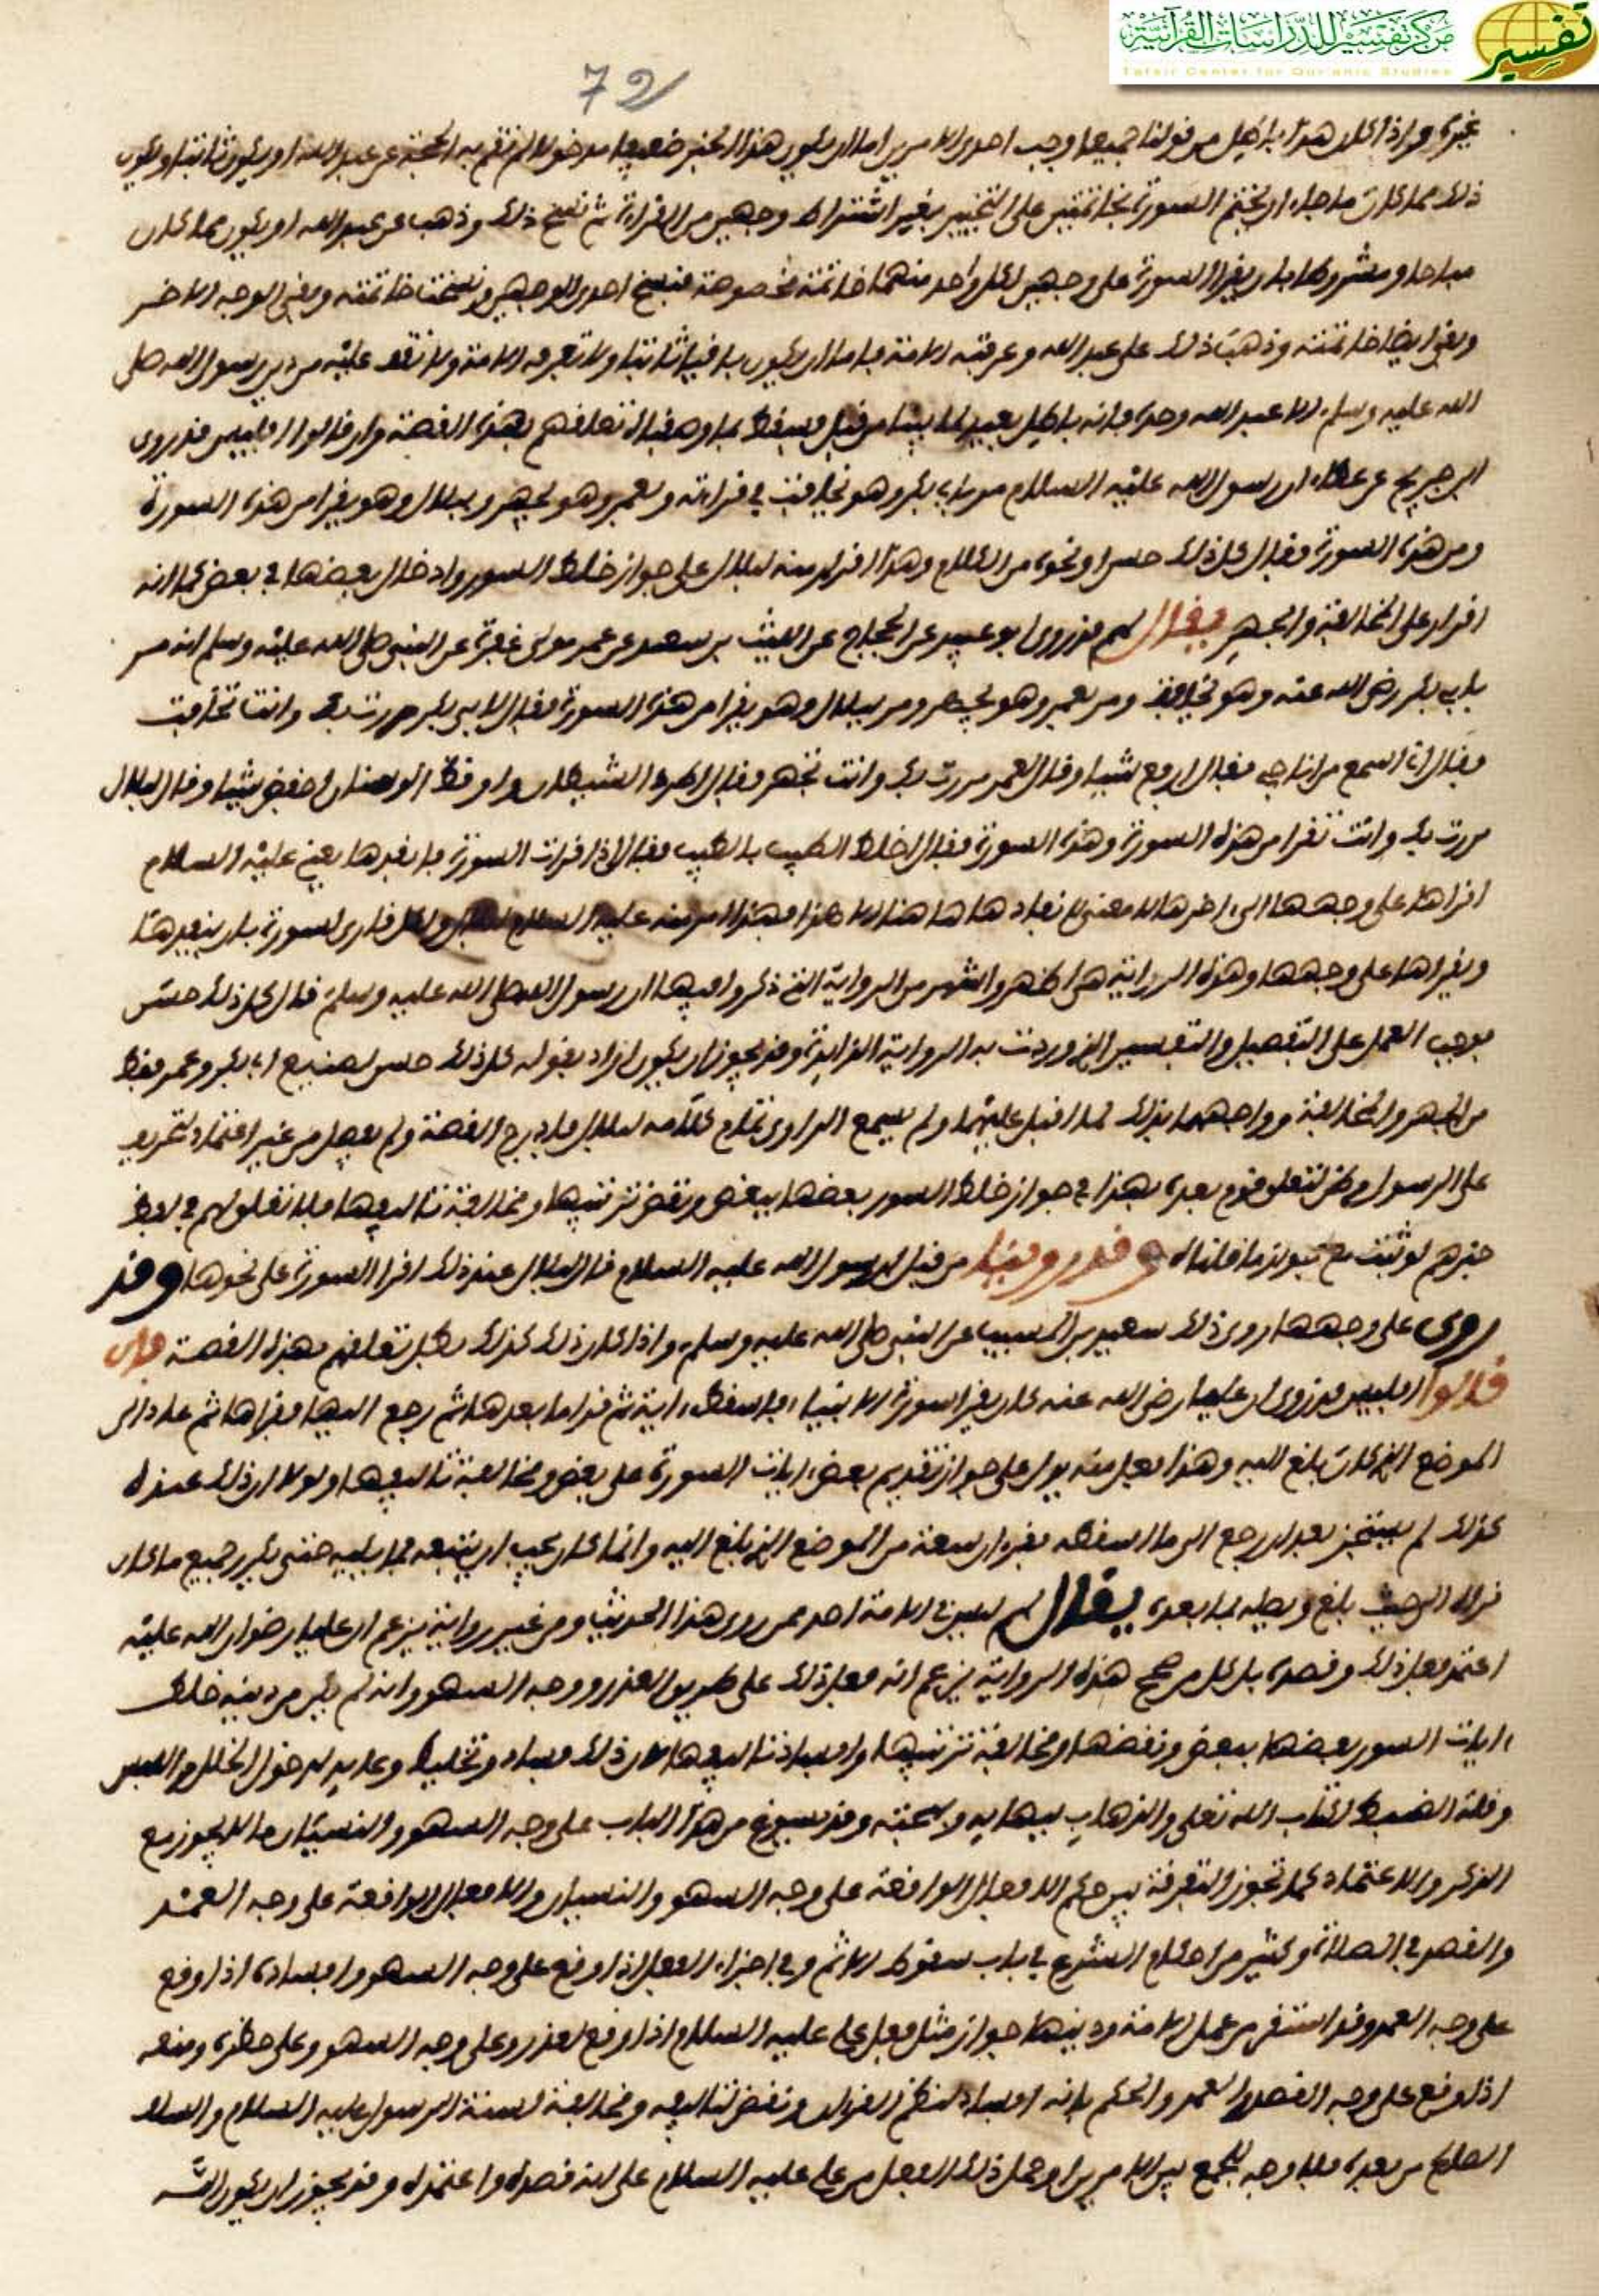 مركز تفسير للدراسات القرآنية
Tafsir Center for Qur'anic Studies
تفسير
72
غيره واذا كان هذا باطل من قولنا جميعا وجب احدى الامرين اما ان يكون هذا الخبر ضعيفا مدخولا لم تقم به الحجة عن عبد الله او يكون ثابتا ويكون
ذلك مما كان ماجاء ان يختم السورة بخاتمتين على التخيير بغير اشتراط وجهين من القراءة ثم نسخ ذلك وذهب عن عبد الله او يكون مما كان
مباحا ومشروطا بان يقرا السورة على وجهين لكل واحد منهما خاتمة مخصوصة فنسخ احدى الوجهين ونسخت خاتمته وبقى الوجه الاخر
وبقى ايضا خاتمته وذهب ذلك على عبد الله وعرفته الامة فاما ان يكون باقيا ثابتا ولا تعرفه الامة ولا تقف عليه من دين رسول الله صلى
الله عليه وسلم الا عبد الله وحده فانه باطل بعيد لما بيناه من قبل فسقط بما وصفناه تعلقهم بهذه القصة وان قالوا افليس قد روى
ابن جريج عن عطاء ان رسول الله عليه السلام مر بابى بكر وهو يخافت فى قراءته وبعمر وهو يجهر وببلال وهو يقرا من هذه السورة
ومن هذه السورة فقال كل ذلك حسن او نحوه من الكلام وهذا اقرار منه لبلال على جواز خلط السور وادخال بعضها فى بعض كما انه
اقرار على المخافتة والجهر يقال لهم قد روى ابو عبيد عن الحجاج عن الليث بن سعد عن عمر مولى غفرة عن النبى صلى الله عليه وسلم انه مر
بابى بكر رضى الله عنه وهو يخافت ومر بعمر وهو يجهر ومر ببلال وهو يقرا من هذه السورة فقال لابى بكر مررت بك وانت تخافت
فقال انا اسمع من اناجى فقال ارفع شيئا وقال لعمر مررت بك وانت تجهر فقال اطرد الشيطان واوقظ الوسنان قال اخفض شيئا وقال لبلال
مررت بك وانت تقرا من هذه السورة وهذه السورة فقال اخلط الطيب بالطيب فقال اذا قرات السورة فانفدها يعنى عليه السلام
اقراها على وجهها الى اخرها لا معنى لانفادها هاهنا الا هذا فهذا امر منه عليه السلام لبلال ولكل قارى لسورة بان ينفدها
ويقراها على وجهها وهذه الرواية هى اظهر واشهر من الرواية التى ذكروا فيها ان رسول الله صلى الله عليه وسلم قال كل ذلك حسن
فوجب العمل على التفصيل والتفسير الذى وردت به الرواية الزايدة وقد يجوز ان يكون اراد بقوله كل ذلك حسن لصنيع ابى بكر وعمر فقط
من الجهر والمخافتة وواجههما بذلك لما اقبل عليهما ولم يسمع الراوى تمام كلامه لبلال فادرج القصة ولم يفصل من غير اعتماد لتحريف
على الرسول وظن لتعلق قوم بعده بهذا فى جواز خلط السور بعضها ببعض ونقض ترتيبها ومخالفة تاليفها فلا تعلق لهم فى لفظ
خبرهم لو ثبت مع ما قلناه وقد روينا من قبل ان رسول الله عليه السلام قال لبلال عند ذلك اقرا السورة على نحوها وقد
روى على وجهها روى ذلك سعيد بن المسيب عن النبى صلى الله عليه وسلم واذا كان ذلك كذلك بطل تعلقهم بهذه القصة فان
قالوا افليس قد روى ان عليا رضى الله عنه كان يقرا سورة الانبياء فاسقط اية ثم قرا ما بعدها ثم رجع اليها فقراها ثم عاد الى
الموضع الذى كان بلغ اليه وهذا فعل منه يدل على جواز تقديم بعض ايات السورة على بعض ومخالفة تاليفها ولولا ان ذلك عنده
كذلك لم يستجز بعد ان رجع الى ما اسقطه بقراءته من الموضع الذى بلغ اليه وانما كان يجب ان يتبعه بما يليه حتى يكرر جميع ما كان
قراه الى حيث بلغ ويصله بما بعده يقال لهم ليس فى الامة احد ممن روى هذا الحديث ومن غير رواية يزعم ان عليا رضوان الله عليه
اعتمد فعل ذلك وقصده بل كل من صحح هذه الرواية يزعم انه فعل ذلك على طريق العذر ووجه السهو وانه لم يكن من دينه خلط
ايات السور بعضها ببعض ونقضها ومخالفة ترتيبها وافساد تاليفها لان ذلك فساد وتخليط وعايد بدخول الخلل واللبس
وقلة الضبط لكتاب الله تعلى والذهاب ببهايه وبهجته وقد يسوغ من هذا الباب على وجه السهو والنسيان ما لا يجوز مع
الذكر والاعتماد كما تجوز التفرقة بين حكم الافعال الواقعة على وجه السهو والنسيان والافعال الواقعة على وجه العمد
والقصد فى الصلاة وكثير من احكام الشرع فى باب سقوط الاثم وفى اجزاء الفعل اذا وقع على وجه السهو وافساده اذا وقع
على وجه العمد وقد استقر من عمل الامة ودينها جواز مثل فعل على عليه السلام اذا وقع لعذر وعلى وجه السهو وعلى حظره ومنعه
اذا وقع على وجه القصد والعمد والحكم بانه افساد لنظم القران ونقض لتاليفه ومخالفة لسنة الرسول عليه السلام والسلف
الصالح من بعده فلا وجه للجمع بين الامرين او حمل ذلك الفعل من على عليه السلام على انه قصده واعتمده وقد يجوز ان يكون انه